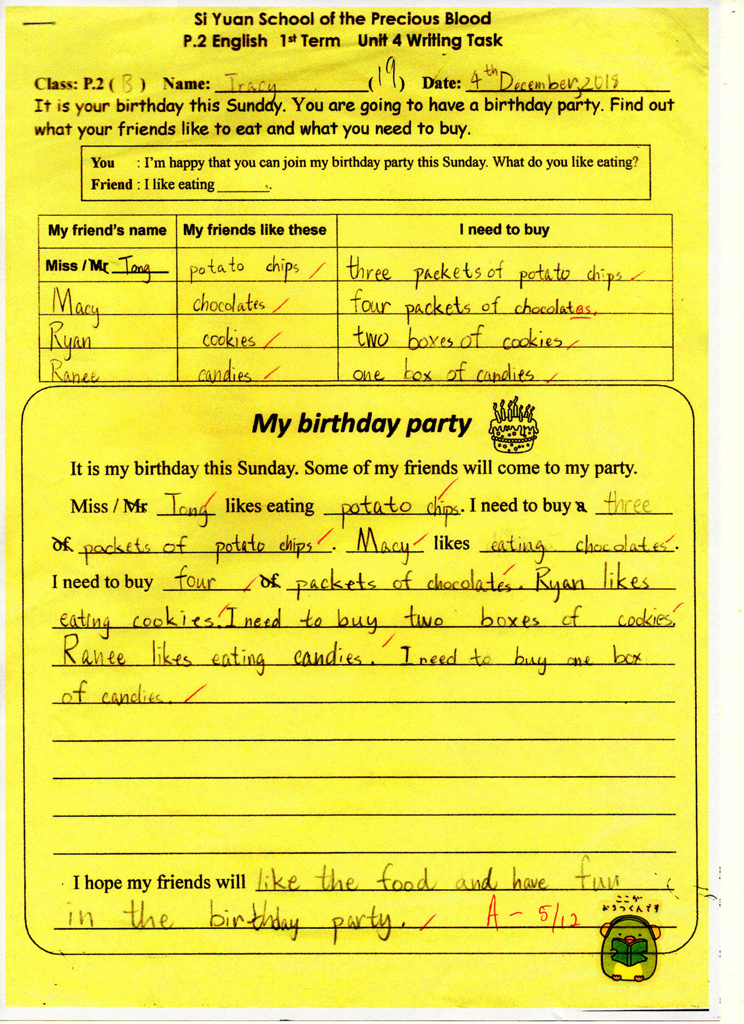 Si Yuan School of the Precious Blood
P.2 English 1st Term Unit 4 Writing Task
Class: P.2 ( B ) Name: Tracy (19) Date: 4th December, 2018
It is your birthday this Sunday. You are going to have a birthday party. Find out
what your friends like to eat and what you need to buy.
You : I'm happy that you can join my birthday party this Sunday. What do you like eating?
Friend : I like eating ______.
My friend's name My friends like these I need to buy
Miss / Mr Tong potato chips three packets of potato chips
Macy chocolates four packets of chocolates.
Ryan cookies two boxes of cookies
Ranee candies one box of candies
My birthday party
It is my birthday this Sunday. Some of my friends will come to my party.
Miss / Mr Tong likes eating potato chips. I need to buy a three
of packets of potato chips. Macy likes eating chocolates.
I need to buy four of packets of chocolates. Ryan likes
eating cookies. I need to buy two boxes of cookies.
Ranee likes eating candies. I need to buy one box
of candies.
I hope my friends will like the food and have fun
in the birthday party. A - 5/12
ここが
おちつくんです